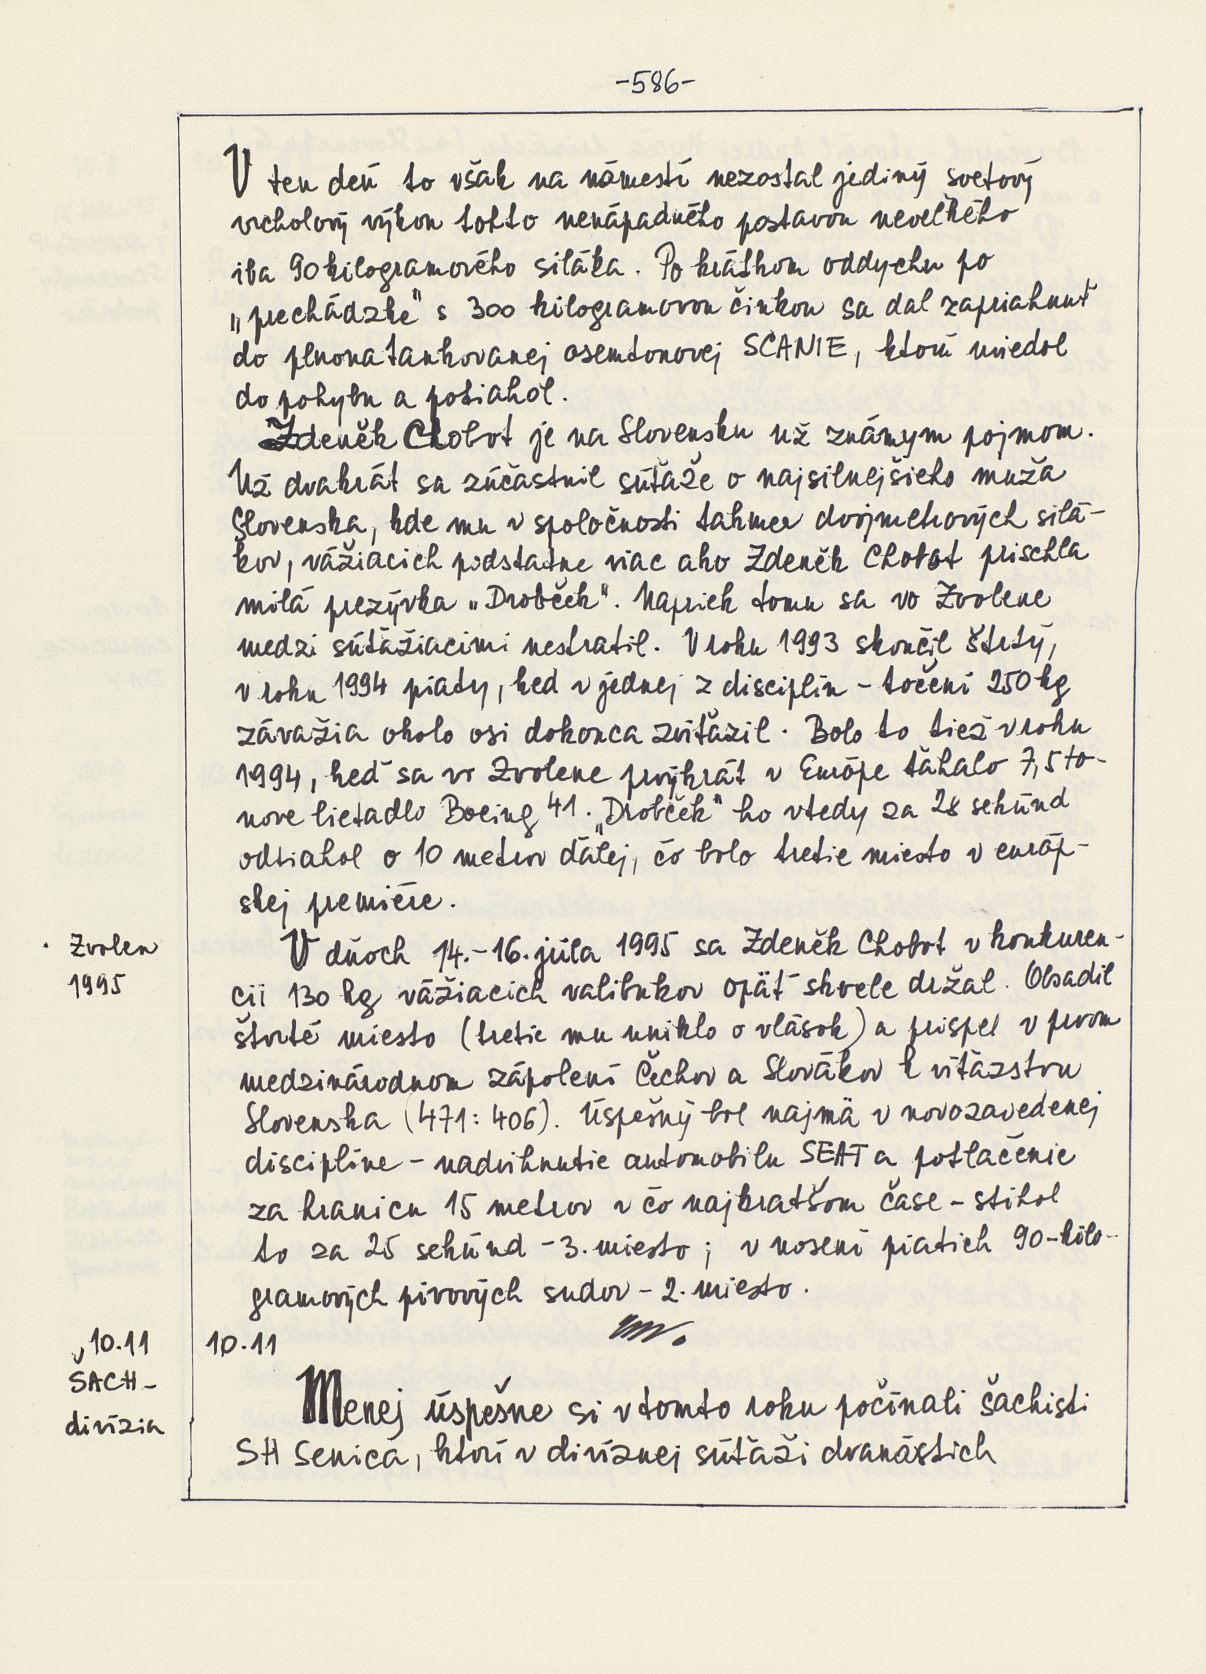 -586-
V ten deň to však na námestí nezostal jediný svetový
vrcholový výkon tohto nenápadného postavou neveľkého
iba 90 kilogramového siláka. Po krátkom oddychu po
„prechádzke" s 300 kilogramovou činkou sa dal zapriahnuť
do plnonatankovanej osemtonovej SCANIE, ktorú uviedol
do pohybu a potiahol.
Zdeněk Chobot je na Slovensku už známym pojmom.
Už dvakrát sa zúčastnil súťaže o najsilnejšieho muža
Slovenska, kde mu v spoločnosti takmer dvojmetrových silá-
kov, vážiacich podstatne viac ako Zdeněk Chobot prischla
milá prezývka „Drobček". Napriek tomu sa vo Zvolene
medzi súťažiacimi nestratil. V roku 1993 skončil štvrtý,
v roku 1994 piaty, keď v jednej z disciplín - točení 250 kg
závažia okolo osi dokonca zvíťazil. Bolo to tiež v roku
1994, keď sa vo Zvolene prvýkrát v Európe ťahalo 7,5 to-
nove lietadlo Boeing 41. „Drobček" ho vtedy za 28 sekúnd
odtiahol o 10 metrov ďalej, čo bolo tretie miesto v európ-
skej premiére.
· Zvolen
1995
V dňoch 14.-16. júla 1995 sa Zdeněk Chobot v konkuren-
cii 130 kg vážiacich valibukov opäť skvele držal. Obsadil
štvrté miesto (tretie mu uniklo o vlások) a prispel v prvom
medzinárodnom zápolení Čechov a Slovákov k víťazstvu
Slovenska (471: 406). Úspešný bol najmä v novozavedenej
disciplíne - nadvihnutie automobilu SEAT a potlačenie
za hranicu 15 metrov v čo najkratšom čase - stihol
to za 25 sekúnd - 3. miesto; v nosení piatich 90-kilo-
gramových pivových sudov - 2. miesto.
10.11
ŠACH-
divízia
10.11
Menej úspešne si v tomto roku počínali šachisti
ŠH Senica, ktorí v divíznej súťaži dvanástich